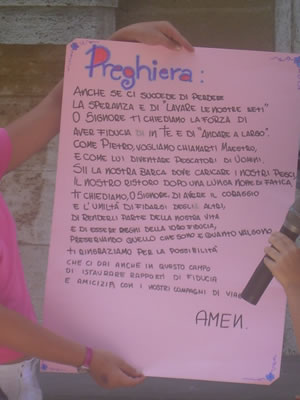 Preghiera:
ANCHE SE CI SUCCEDE DI PERDERE
LA SPERANZA E DI "LAVARE LE NOSTRE RETI"
O SIGNORE TI CHIEDIAMO LA FORZA DI
AVER FIDUCIA DI IN TE E DI "ANDARE A LARGO".
COME PIETRO, VOGLIAMO CHIAMARTI MAESTRO,
E COME LUI DIVENTARE PESCATORI DI UOMINI,
SII LA NOSTRA BARCA DOVE CARICARE I NOSTRI PESCI,
IL NOSTRO RISTORO DOPO UNA LUNGA NOTTE DI FATICA,
TI CHIEDIAMO, O SIGNORE, DI AVERE IL CORAGGIO
E L'UMILTÀ DI FIDARSI DEGLI ALTRI,
DI RENDERLI PARTE DELLA NOSTRA VITA
E DI ESSERE DEGNI DELLA LORO FIDUCIA,
PRESERVANDO QUELLO CHE SONO E QUANTO VALGONO,
TI RINGRAZIAMO PER LA POSSIBILITÀ
CHE CI DAI ANCHE IN QUESTO CAMPO
DI ISTAURARE RAPPORTI DI FIDUCIA
E AMICIZIA CON I NOSTRI COMPAGNI DI
AMEN.